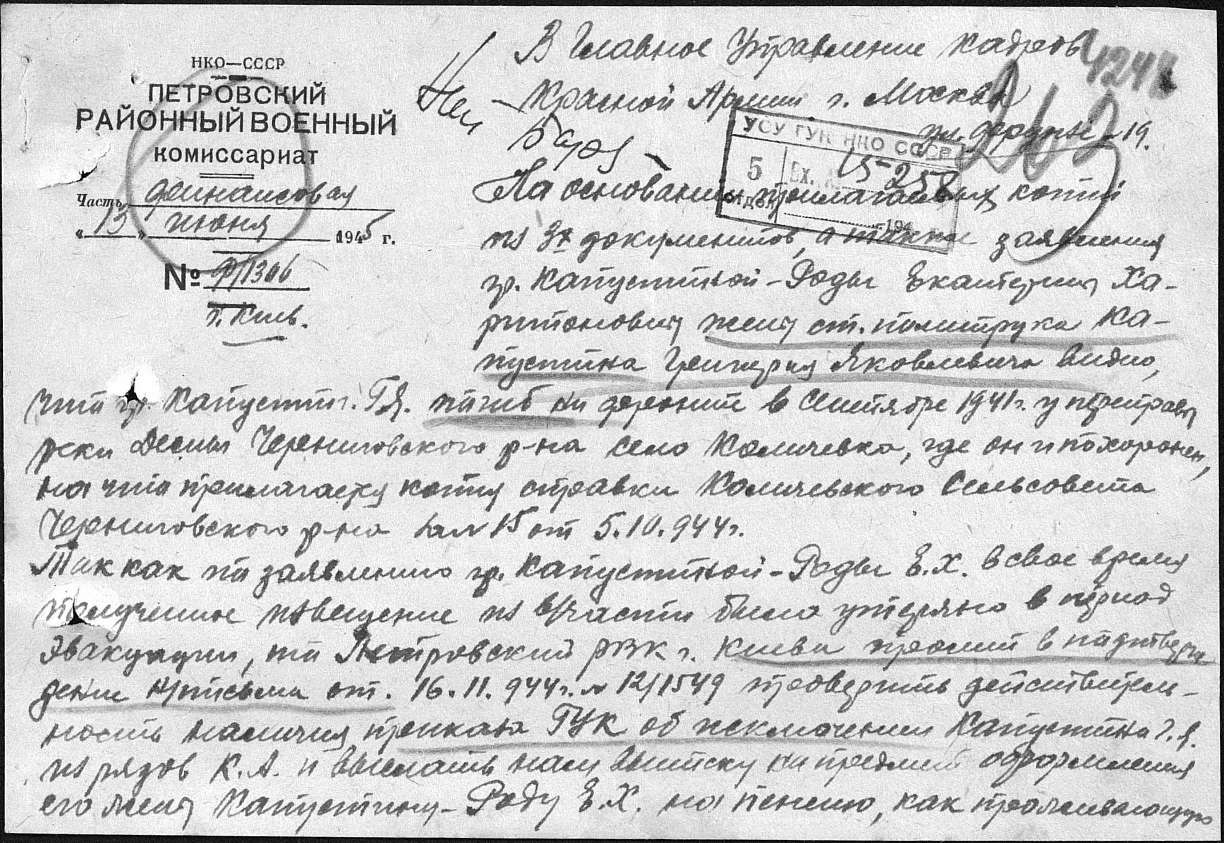 НКО—СССР
ПЕТРОВСКИЙ
РАЙОННЫЙ ВОЕННЫЙ
комиссариат
Часть финансовая
„13" июня 1945 г.
№ Ф/1366
г. Киев.
В Главное Управление кадров
Красной Армии г. Москва
ул. Фрунзе 19.
4244
263
УСУ ГУК НКО СССР
5 отдел
Вх. № 15-258
194
На основании прилагаемых копий
из 3х документов, а также заявления
гр. Капустиной-Роды Екатерины Ха-
ритоновны жены ст. политрука Ка-
пустина Григория Яковлевича видно,
что гр. Капустин. Г.Я. погиб на фронте в сентябре 1941 г. у переправы
реки Десны Черниговского р-на село Количевка, где он и похоронен,
на что прилагаем копия справки Количевского Сельсовета
Черниговского р-на за № 15 от 5.10.944 г.
Так как по заявлению гр. Капустиной-Роды Е.Х. в свое время
полученное извещение из в/части было утеряно в период
эвакуации, то Петровский РВК г. Киева просит в подтвер-
дение н/письма от. 16.11.944 г. № 12/1549 проверить действитель-
ность наличия приказа ГУК об исключении Капустина Г.Я.
из рядов К.А. и выслать нам выписку на предмет оформления
его жену Капустину-Роду Е.Х. на пенсию, как проживающую